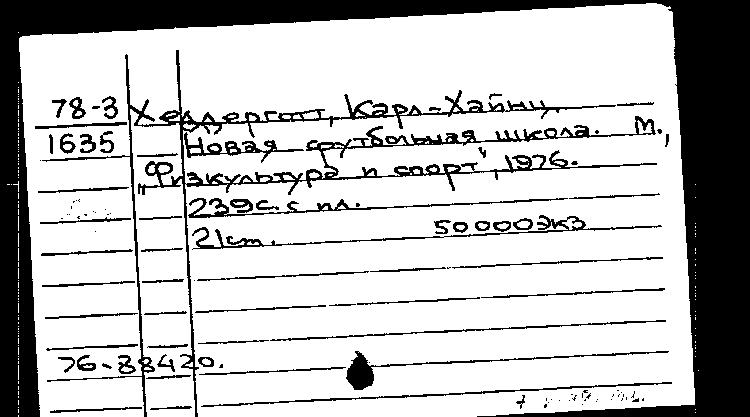 78-3 Хеддерготт, Карл-Хайнц.
1635 Новая футбольная школа. М.,
„Физкультура и спорт", 1976.
239с. с ил.
21cm. 50000экз
76-88420.